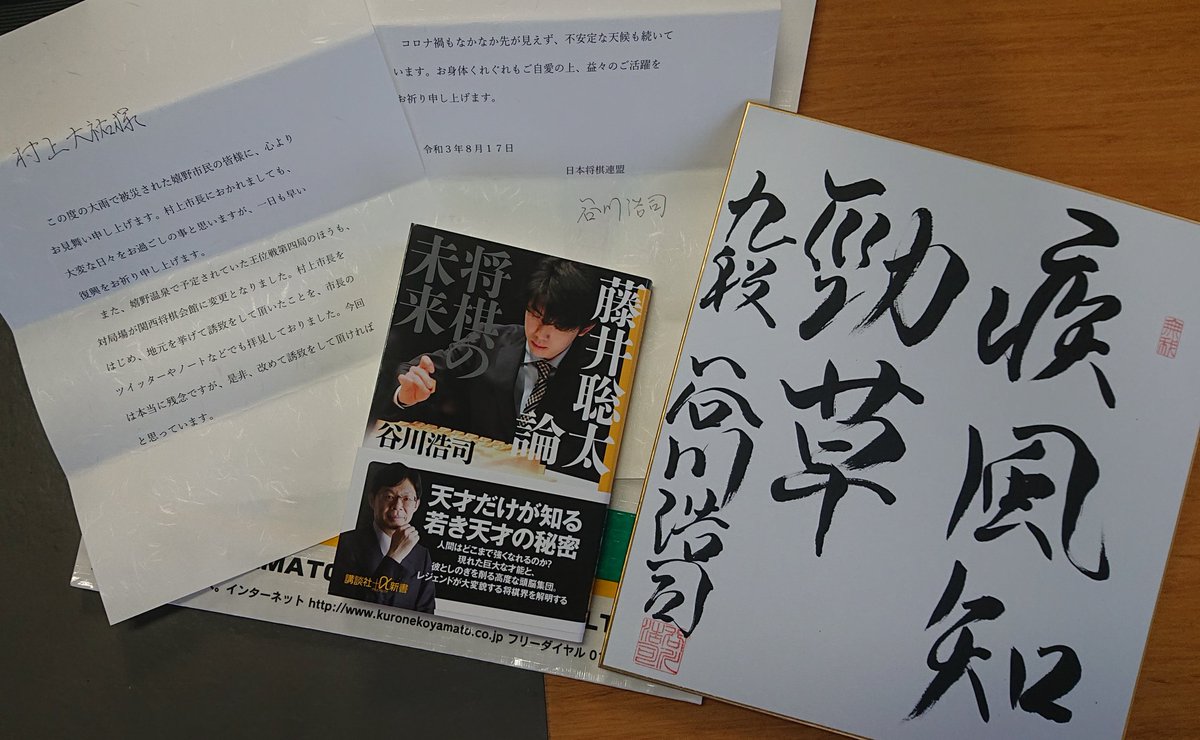 村上大祐様
この度の大雨で被災された嬉野市民の皆様に、心より
お見舞い申し上げます。村上市長におかれましても、
大変な日々をお過ごしの事と思いますが、一日も早い
復興をお祈り申し上げます。
また、嬉野温泉で予定されていた王位戦第四局のほうも、
対局場が関西将棋会館に変更となりました。村上市長を
はじめ、地元を挙げて誘致をして頂いたことを、市長の
ツイッターやノートなどでも拝見しておりました。今回
は本当に残念ですが、是非、改めて誘致をして頂ければ
と思っています。
コロナ禍もなかなか先が見えず、不安定な天候も続いて
います。お身体くれぐれもご自愛の上、益々のご活躍を
お祈り申し上げます。
令和3年8月17日
日本将棋連盟
谷川浩司
藤井聡太論
将棋の
未来
谷川浩司
天才だけが知る
若き天才の秘密
人間はどこまで強くなれるのか?
現れた巨大な才能と、
彼としのぎを削る高度な頭脳集団。
レジェンドが大変貌する将棋界を解明する
講談社+α新書
疾風知
勁草
九段 谷川浩司
インターネット http://www.kuronekoyamato.co.jp フリーダイヤル 01